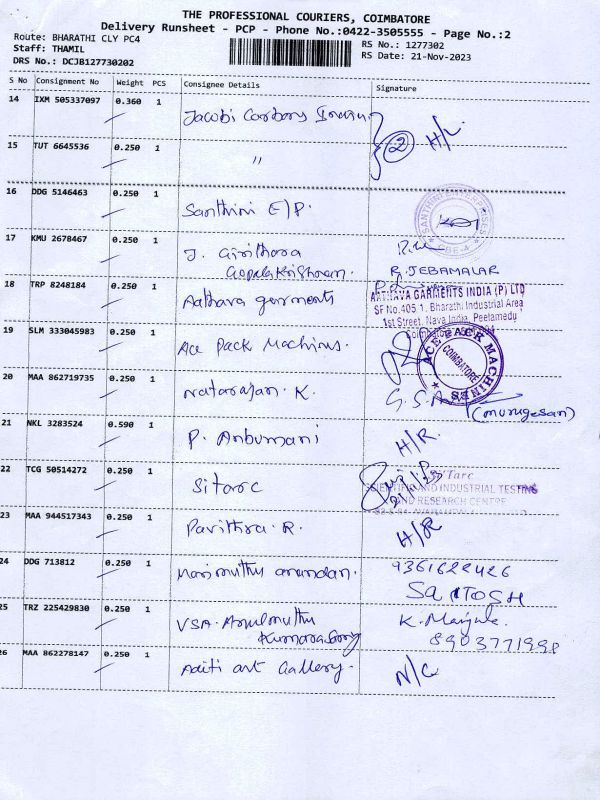 THE PROFESSIONAL COURIERS, COIMBATORE
Delivery Runsheet - PCP - Phone No.:0422-3505555 - Page No.:2
Route: BHARATHI CLY PC4
Staff: THAMIL
DRS No.: DCJB127730202
RS No.: 1277302
RS Date: 21-Nov-2023
S No Consignment No Weight PCS Consignee Details Signature
14 IXM 505337097 0.360 1 Jacobi Carbons
2 H/L
15 TUT 6645536 0.250 1 "
16 DDG 5146463 0.250 1 Santhini E/P.
SANTHINI ENTERPRISES CBE-4
17 KMU 2678467 0.250 1 J. Girithora
Gopala Krishnan. R. JEBAMALAR
18 TRP 8248184 0.250 1 Aathava garments
AATHAVA GARMENTS INDIA (P) LTD
SF No.405 1, Bharathi Industrial Area
1st Street, Nava India, Peelamedu
19 SLM 333045983 0.250 1 Ace Pack Machines.
ACE PACK MACHINES COIMBATORE
20 MAA 862719735 0.250 1 Natarajan. K.
(Murugesan)
21 NKL 3283524 0.590 1 P. Anbumani H/R.
22 TCG 50514272 0.250 1 Sitarc
Si'Tarc
SCIENTIFIC AND INDUSTRIAL TESTING
AND RESEARCH CENTRE
23 MAA 944517343 0.250 1 Pavithra. R. H/R
24 DDG 713812 0.250 1 Marimuthu anandan. 9361622426
SANTOSH
25 TRZ 225429830 0.250 1 VSA. Arulmuthu K. Manjula
8903771998
26 MAA 862278147 0.250 1 Aditi art Gallery. N/C